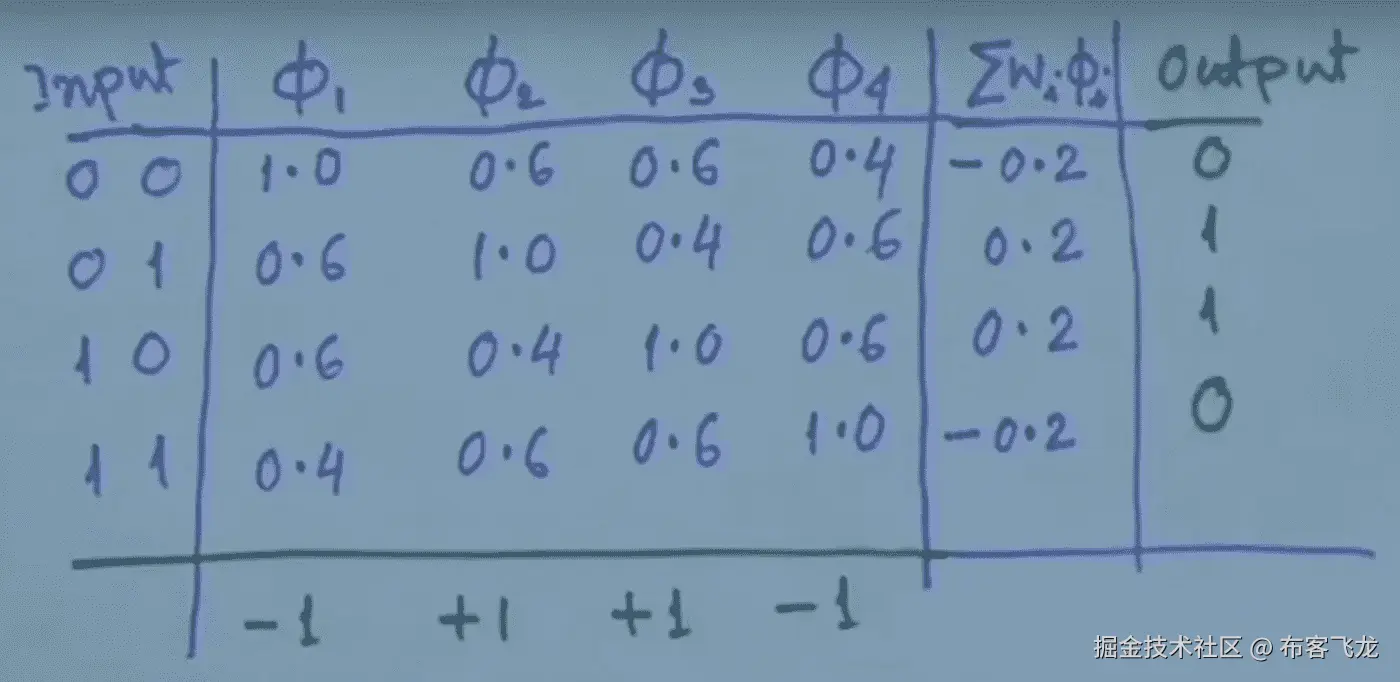 Input ϕ₁ ϕ₂ ϕ₃ ϕ₄ ∑Wᵢϕᵢ Output
0 0 1.0 0.6 0.6 0.4 -0.2 0
0 1 0.6 1.0 0.4 0.6 0.2 1
1 0 0.6 0.4 1.0 0.6 0.2 1
1 1 0.4 0.6 0.6 1.0 -0.2 0
-1 +1 +1 -1
掘金技术社区 @ 布客飞龙